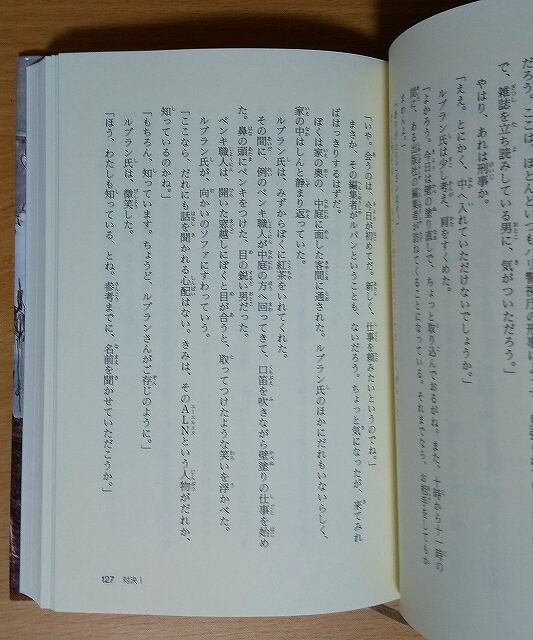 だろう。ここは、ほとんどいつもパリ警視庁の刑事に
で、雑誌を立ち読みしている男に、気がついただろう。」
やはり、あれは刑事か。
「ええ。とにかく、中へ入れていただけないでしょうか。」
ルブラン氏は少し考え、肩をすくめた。
「よかろう。今日は壁の塗り直しで、ちょっと取り込んでおるがね。また、十時
「いや。会うのは、今日が初めてだ。新しく、仕事を頼みたいというのでね。」
まさか、その編集者がルパンということも、ないだろう。ちょっと気になったが、来てみれ
ばはっきりするはずだ。
ぼくは家の奥の、中庭に面した客間に通された。ルブラン氏のほかにだれもいないらしく、
家の中はしんと静まり返っていた。
ルブラン氏は、みずからぼくに紅茶をいれてくれた。
その間に、例のペンキ職人が中庭の方へ回ってきて、口笛を吹きながら壁塗りの仕事を始め
た。鼻の頭にペンキをつけた、目の鋭い男だった。
ペンキ職人は、開いた窓越しにぼくと目が合うと、取ってつけたような笑いを浮かべた。
ルブラン氏が、向かいのソファにすわっていう。
「ここなら、だれにも話を聞かれる心配はない。きみは、そのALNという人物がだれか、
知っているのかね。」
「もちろん、知っています。ちょうど、ルブランさんがご存じのように。」
ルブラン氏は、微笑した。
「ほう、わたしも知っている、とね。参考までに、名前を聞かせていただこうか。」
127 対決Ⅰ